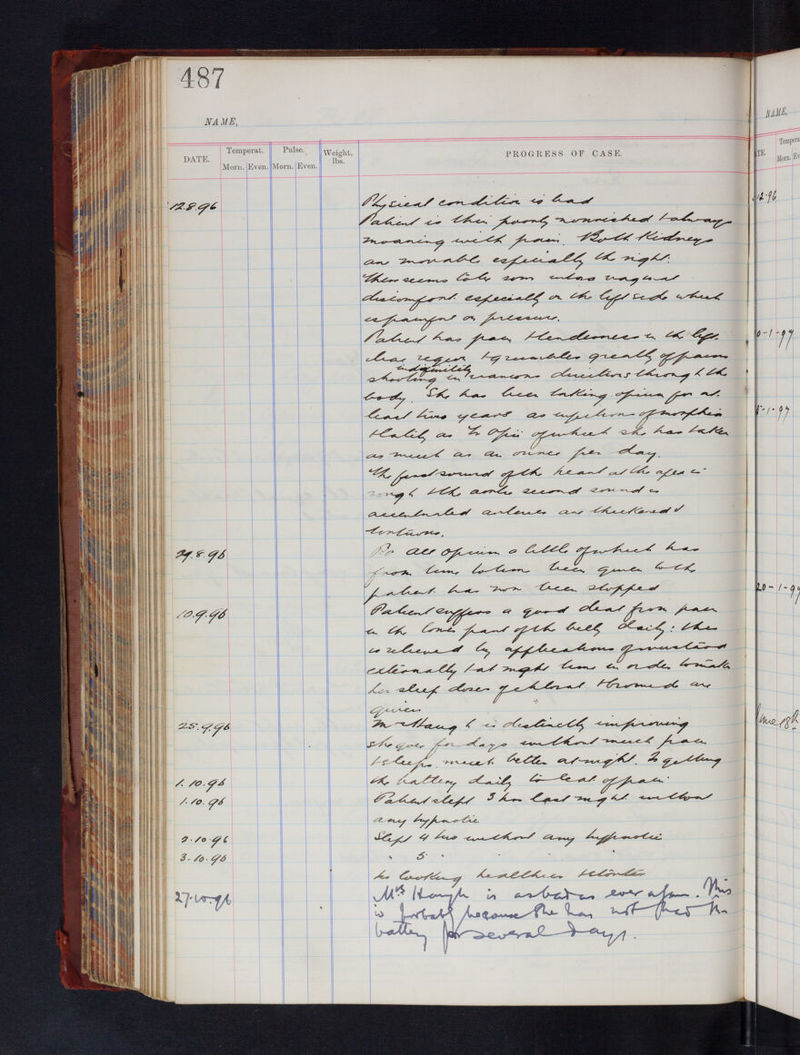 487
NAME,
DATE.
Temperat.
Pulse.
Weight, lbs.
PROGRESS OF CASE.
Morn. Even. Morn. Even.
12.8.96 Physical condition is bad
Patient is thin poorly nourished & always
moaning with pain. Both Kidneys
are movable especially the right.
There seems to be some vaginal
discomfort especially on the left side which
is painful on pressure.
Patient has pain & tenderness in the left
iliac region & grumbles greatly of pains
shooting indefinitely in various directions through the
body. She has been taking opium for at
least two years as injections of morphia
& lately as Tr Opii of which she has taken
as much as an ounce per day.
The first sound of the heart at the apex is
rough & the aortic second sound is
accentuated arteries are thickened &
tortuous.
29.8.96 All Opium a little of which has
from time to time been given to the
patient has now been stopped
10.9.96 Patient suffers a good deal from pain
in the lower part of the belly daily: this
is relieved by applications of mustard
externally & at night time in order to make
her sleep doses of chloral & bromide are
given
25.9.96 Mrs Haugh is distinctly improving
she goes for days without much pain
& sleeps much better at night. Is getting
1.10.96 the battery daily to seat of pain
1.10.96 Patient slept 3 hrs last night without
any hypnotic
2.10.96 Slept 4 hrs without any hypnotic
3.10.96 " 5 "
is looking healthier &
27.10.96 Mrs Haugh is as bad as ever again. This
is probably because she has not had the
battery for several days.
NAME,
Tempera
Morn. Ev
12.96
0-1-97
5-1-97
20-1-97
June 18th